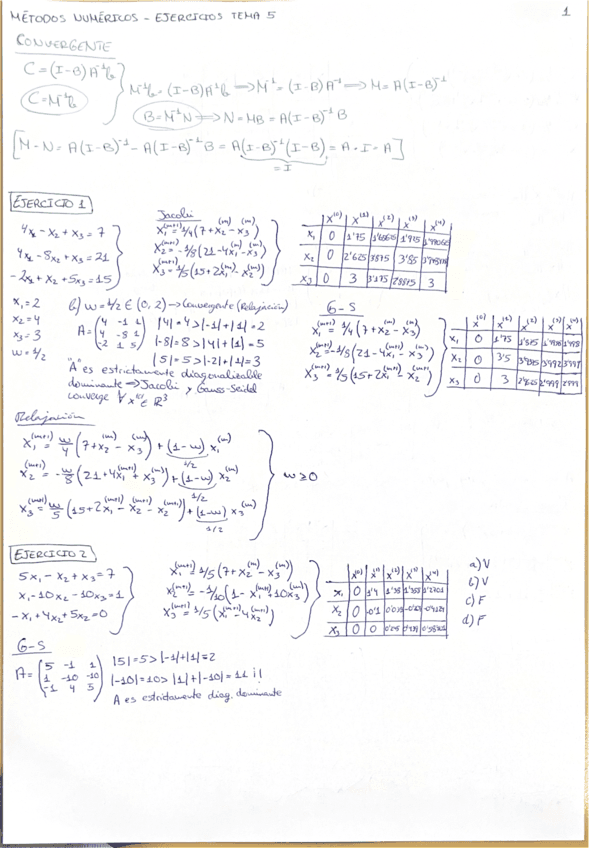 MÉTODOS NUMÉRICOS - EJERCICIOS TEMA 5
1
CONVERGENTE
C = (I-B)A⁻¹b
C = M⁻¹b
M⁻¹b = (I-B)A⁻¹b ⟹ M⁻¹ = (I-B)A⁻¹ ⟹ M = A(I-B)⁻¹
B = M⁻¹N ⟹ N = MB = A(I-B)⁻¹B
[M-N = A(I-B)⁻¹ - A(I-B)⁻¹B = A(I-B)⁻¹(I-B) = A·I = A]
= I
EJERCICIO 1
4x₁ - x₂ + x₃ = 7
4x₁ - 8x₂ + x₃ = 21
-2x₁ + x₂ + 5x₃ = 15
Jacobi
x₁⁽ᵐ⁺¹⁾ = 1/4(7 + x₂⁽ᵐ⁾ - x₃⁽ᵐ⁾)
x₂⁽ᵐ⁺¹⁾ = -1/8(21 - 4x₁⁽ᵐ⁾ - x₃⁽ᵐ⁾)
x₃⁽ᵐ⁺¹⁾ = 1/5(15 + 2x₁⁽ᵐ⁾ - x₂⁽ᵐ⁾)
x⁽⁰⁾ x⁽¹⁾ x⁽²⁾ x⁽³⁾ x⁽⁴⁾
x₁ 0 1'75
x₂ 0 2'625 3'875 3'85
x₃ 0 3 3'175 2'8875 3
x₁ = 2
x₂ = 4
x₃ = 3
w = 1/2
b) w = 1/2 ∈ (0, 2) → Convergente (Relajación)
A = (4 -1 1
4 -8 1
-2 1 5)
|4| = 4 > |-1| + |1| = 2
|-8| = 8 > |4| + |1| = 5
|5| = 5 > |-2| + |1| = 3
"A" es estrictamente diagonalizable
dominante ⟹ Jacobi y Gauss-Seidel
converge ∀ x⁽⁰⁾ ∈ ℝ³
G-S
x₁⁽ᵐ⁺¹⁾ = 1/4(7 + x₂⁽ᵐ⁾ - x₃⁽ᵐ⁾)
x₂⁽ᵐ⁺¹⁾ = -1/8(21 - 4x₁⁽ᵐ⁺¹⁾ - x₃⁽ᵐ⁾)
x₃⁽ᵐ⁺¹⁾ = 1/5(15 + 2x₁⁽ᵐ⁺¹⁾ - x₂⁽ᵐ⁺¹⁾)
x₁ 0 1'75
x₂ 0 3'5
x₃ 0 3
Relajación
x₁⁽ᵐ⁺¹⁾ = w/4(7 + x₂⁽ᵐ⁾ - x₃⁽ᵐ⁾) + (1-w)x₁⁽ᵐ⁾
1/2
x₂⁽ᵐ⁺¹⁾ = -w/8(21 + 4x₁⁽ᵐ⁺¹⁾ + x₃⁽ᵐ⁾) + (1-w)x₂⁽ᵐ⁾
1/2
x₃⁽ᵐ⁺¹⁾ = w/5(15 + 2x₁⁽ᵐ⁺¹⁾ - x₂⁽ᵐ⁺¹⁾ - x₂⁽ᵐ⁺¹⁾) + (1-w)x₃⁽ᵐ⁾
1/2
w ≥ 0
EJERCICIO 2
5x₁ - x₂ + x₃ = 7
x₁ - 10x₂ - 10x₃ = 1
-x₁ + 4x₂ + 5x₃ = 0
x₁⁽ᵐ⁺¹⁾ = 1/5(7 + x₂⁽ᵐ⁾ - x₃⁽ᵐ⁾)
x₂⁽ᵐ⁺¹⁾ = -1/10(1 - x₁⁽ᵐ⁺¹⁾ 10x₃⁽ᵐ⁾)
x₃⁽ᵐ⁺¹⁾ = 1/5(x₁⁽ᵐ⁺¹⁾ - 4x₂⁽ᵐ⁺¹⁾)
x⁽⁰⁾ x⁽¹⁾ x⁽²⁾ x⁽³⁾ x⁽⁴⁾
x₁ 0 1'4
x₂ 0 -0'1
x₃ 0 0
a) V
b) V
c) F
d) F
G-S
A = (5 -1 1
1 -10 -10
-1 4 5)
|5| = 5 > |-1| + |1| = 2
|-10| = 10 > |1| + |-10| = 11 ¡!
A es estrictamente diag. dominante